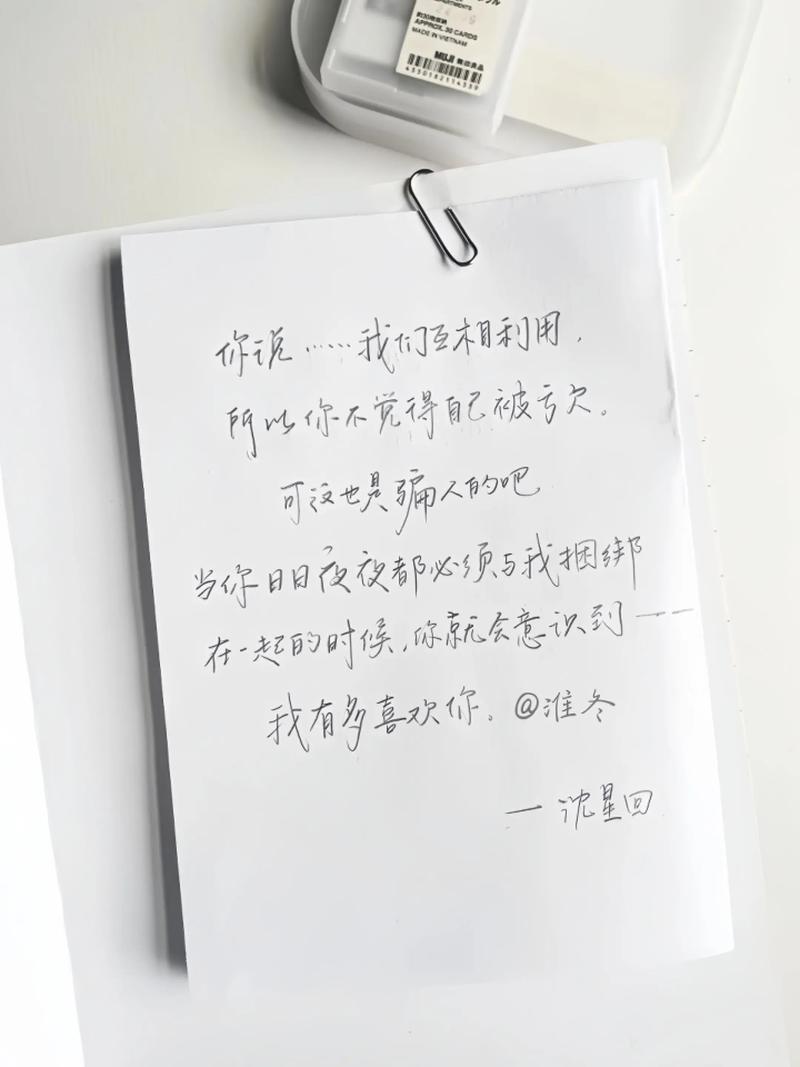 APPROX. 30 CARDS
MADE IN VIETNAM
MUJI 無印良品
你说……我们互相利用,
所以你不觉得自己被亏欠。
可这也是骗人的吧
当你日日夜夜都必须与我捆绑
在一起的时候,你就会意识到——
我有多喜欢你。@淮冬
—沈星回